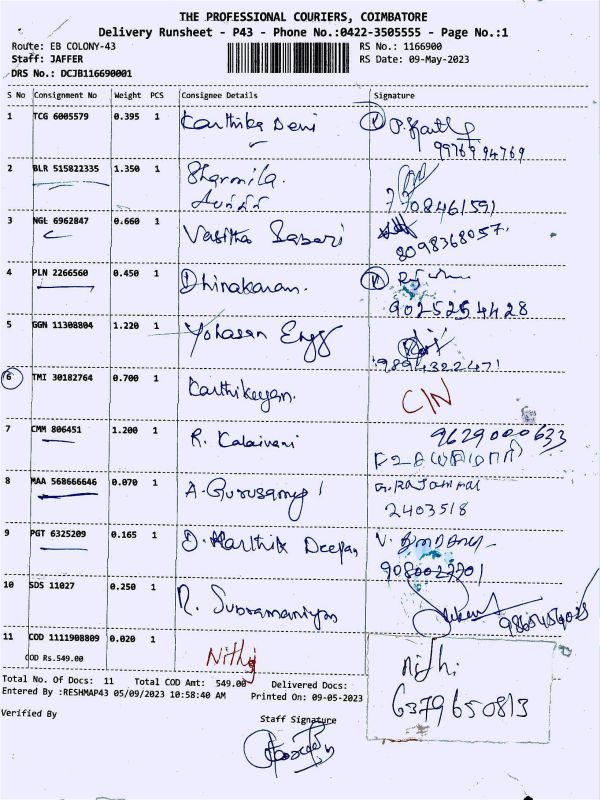 THE PROFESSIONAL COURIERS, COIMBATORE
Delivery Runsheet - P43 - Phone No.:0422-3505555 - Page No.:1
Route: EB COLONY-43 RS No.: 1166900
Staff: JAFFER RS Date: 09-May-2023
DRS No.: DCJB116690001
S No Consignment No Weight PCS Consignee Details Signature
1 TCG 6005579 0.395 1 Karthika Devi
99769 94769
2 BLR 515822335 1.350 1 Sharmila.
7708461591
3 NGL 6962847 0.660 1 Vasitha Sabari
8098368057.
4 PLN 2266560 0.450 1 Dhinakaran.
9025254428
5 GGN 11308804 1.220 1 Yohasan Engg
9894322471
6 TMI 30182764 0.700 1 Karthikeyan. C/N
7 CMM 806451 1.200 1 R. Kalaivani 9629000633
8 MAA 568666646 0.070 1 A. Gurusamy G. Rajammal
2403518
9 PGT 6325209 0.165 1 D. Karthik Deepan V.
10 SDS 11027 0.250 1 N. Subramaniyan
11 COD 1111908809 0.020 1 Nithi nithi
COD Rs.549.00 6379650813
Total No. Of Docs: 11 Total COD Amt: 549.00 Delivered Docs:
Entered By :RESHMAP43 05/09/2023 10:58:40 AM Printed On: 09-05-2023
Verified By Staff Signature